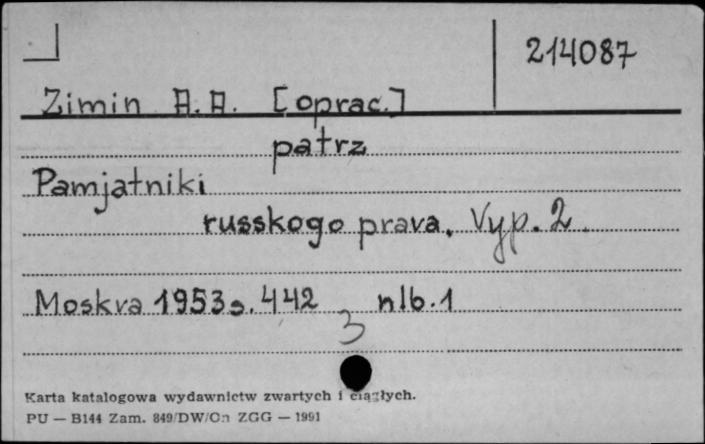 214087
Zimin A.A. [oprac.]
patrz
Pamjatniki
russkogo prava. Vyp. 2.
Moskva 1953 s. 442 nlb. 1
3
Karta katalogowa wydawnictw zwartych i ciągłych.
PU — B144 Zam. 849/DW/Cn ZGG — 1991